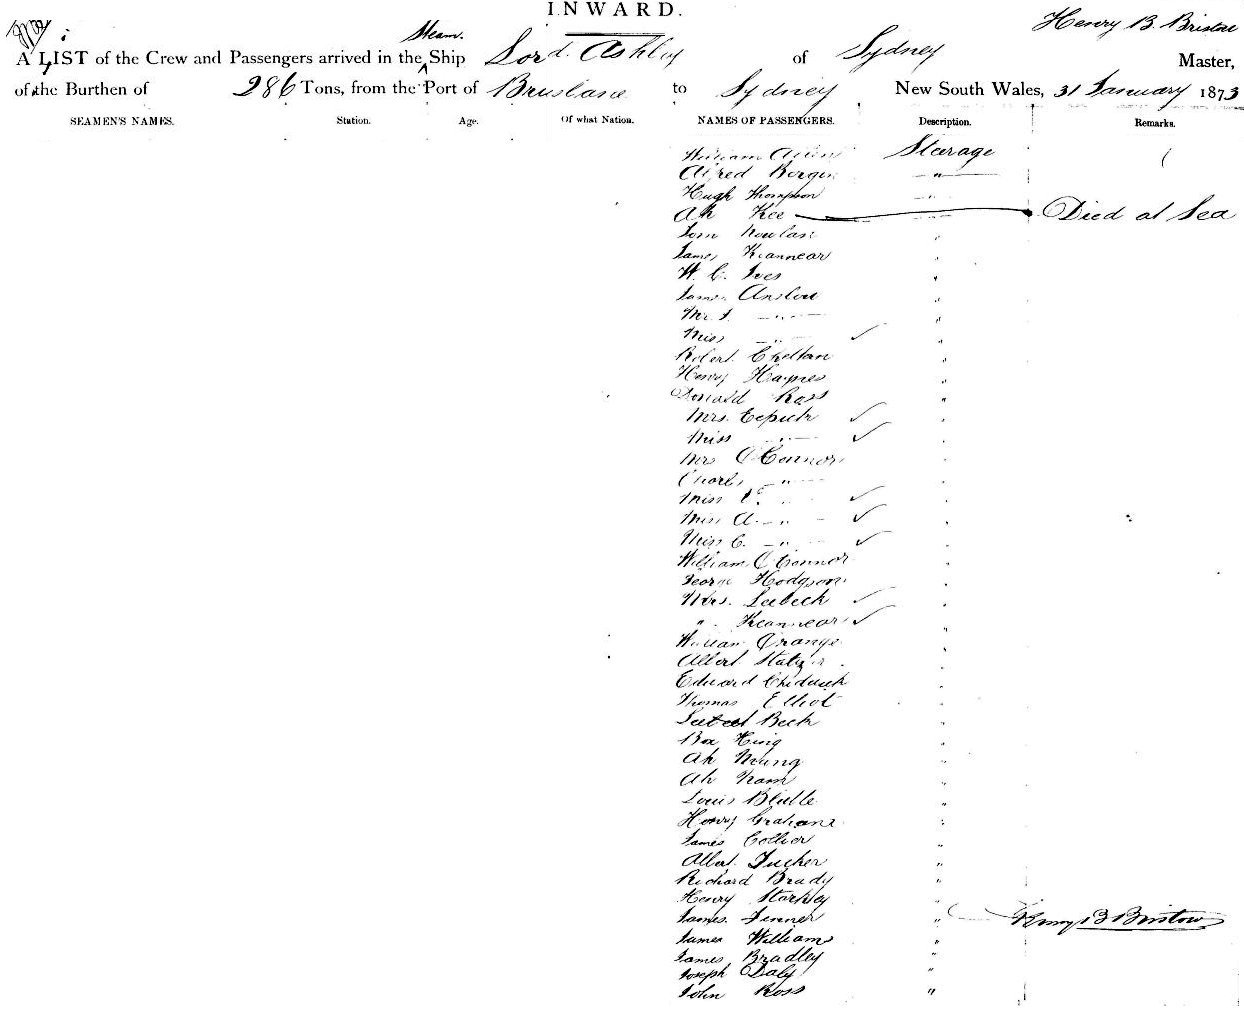 INWARD.
Henry B Bristow
Steam
A LIST of the Crew and Passengers arrived in the Ship Lord Ashley of Sydney Master,
of the Burthen of 286 Tons, from the Port of Brisbane to Sydney New South Wales, 31 January 1873
SEAMEN'S NAMES. Station. Age. Of what Nation. NAMES OF PASSENGERS. Description. Remarks.
William Stearage
Alfred "
Hugh Thompson "
Ah Kee Died at Sea
Tom Nowlan "
James Keannear "
W. C. Ives "
James Anslow "
Mr. J. " "
Miss " ✓ "
Robert Chellan "
Henry Haynes "
Donald Ross "
Mrs. ✓ "
Miss " ✓ "
Mrs O'Connor "
Charles " "
Miss " ✓ "
Miss A. " ✓ "
Miss C. " ✓ "
William O'Connor "
George Hodgson "
Mrs. Leebeck ✓ "
" Keannear ✓ "
William Orange "
Albert "
Edward Chidwick "
Thomas Elliot "
Beck "
Box Hing "
Ah "
Ah "
Louis "
Henry Graham "
James Collier "
Albert Tucker "
Richard Brady "
Henry Starkey "
James Jenner " Henry B Bristow
James Williams "
James Bradley "
Joseph Daly "
John Ross "